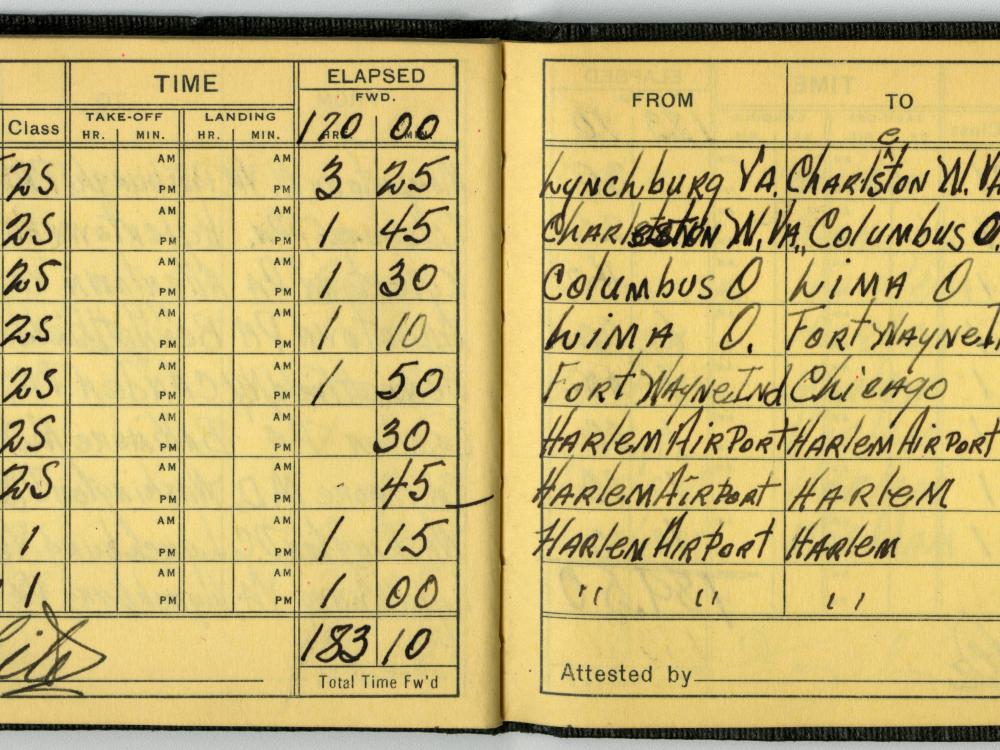 TIME ELAPSED
FWD.
Class TAKE-OFF LANDING
HR. MIN. HR. MIN. HR. MIN.
170 00
25 AM PM AM PM 3 25
25 AM PM AM PM 1 45
25 AM PM AM PM 1 30
25 AM PM AM PM 1 10
25 AM PM AM PM 1 50
25 AM PM AM PM 30
25 AM PM AM PM 45
1 AM PM AM PM 1 15
1 AM PM AM PM 1 00
183 10
Total Time Fw'd
FROM TO
Lynchburg VA. Charleston W.VA
Charleston W.VA, Columbus O.
Columbus O LiMA O
LiMA O. FORT WAYNE
FORT WAYNE Ind Chicago
HARlem AiRPORT HARlem AiRPORT
HARlem AiRPORT HARleM
HARlem AiRPORT HARlem
" " "
Attested by